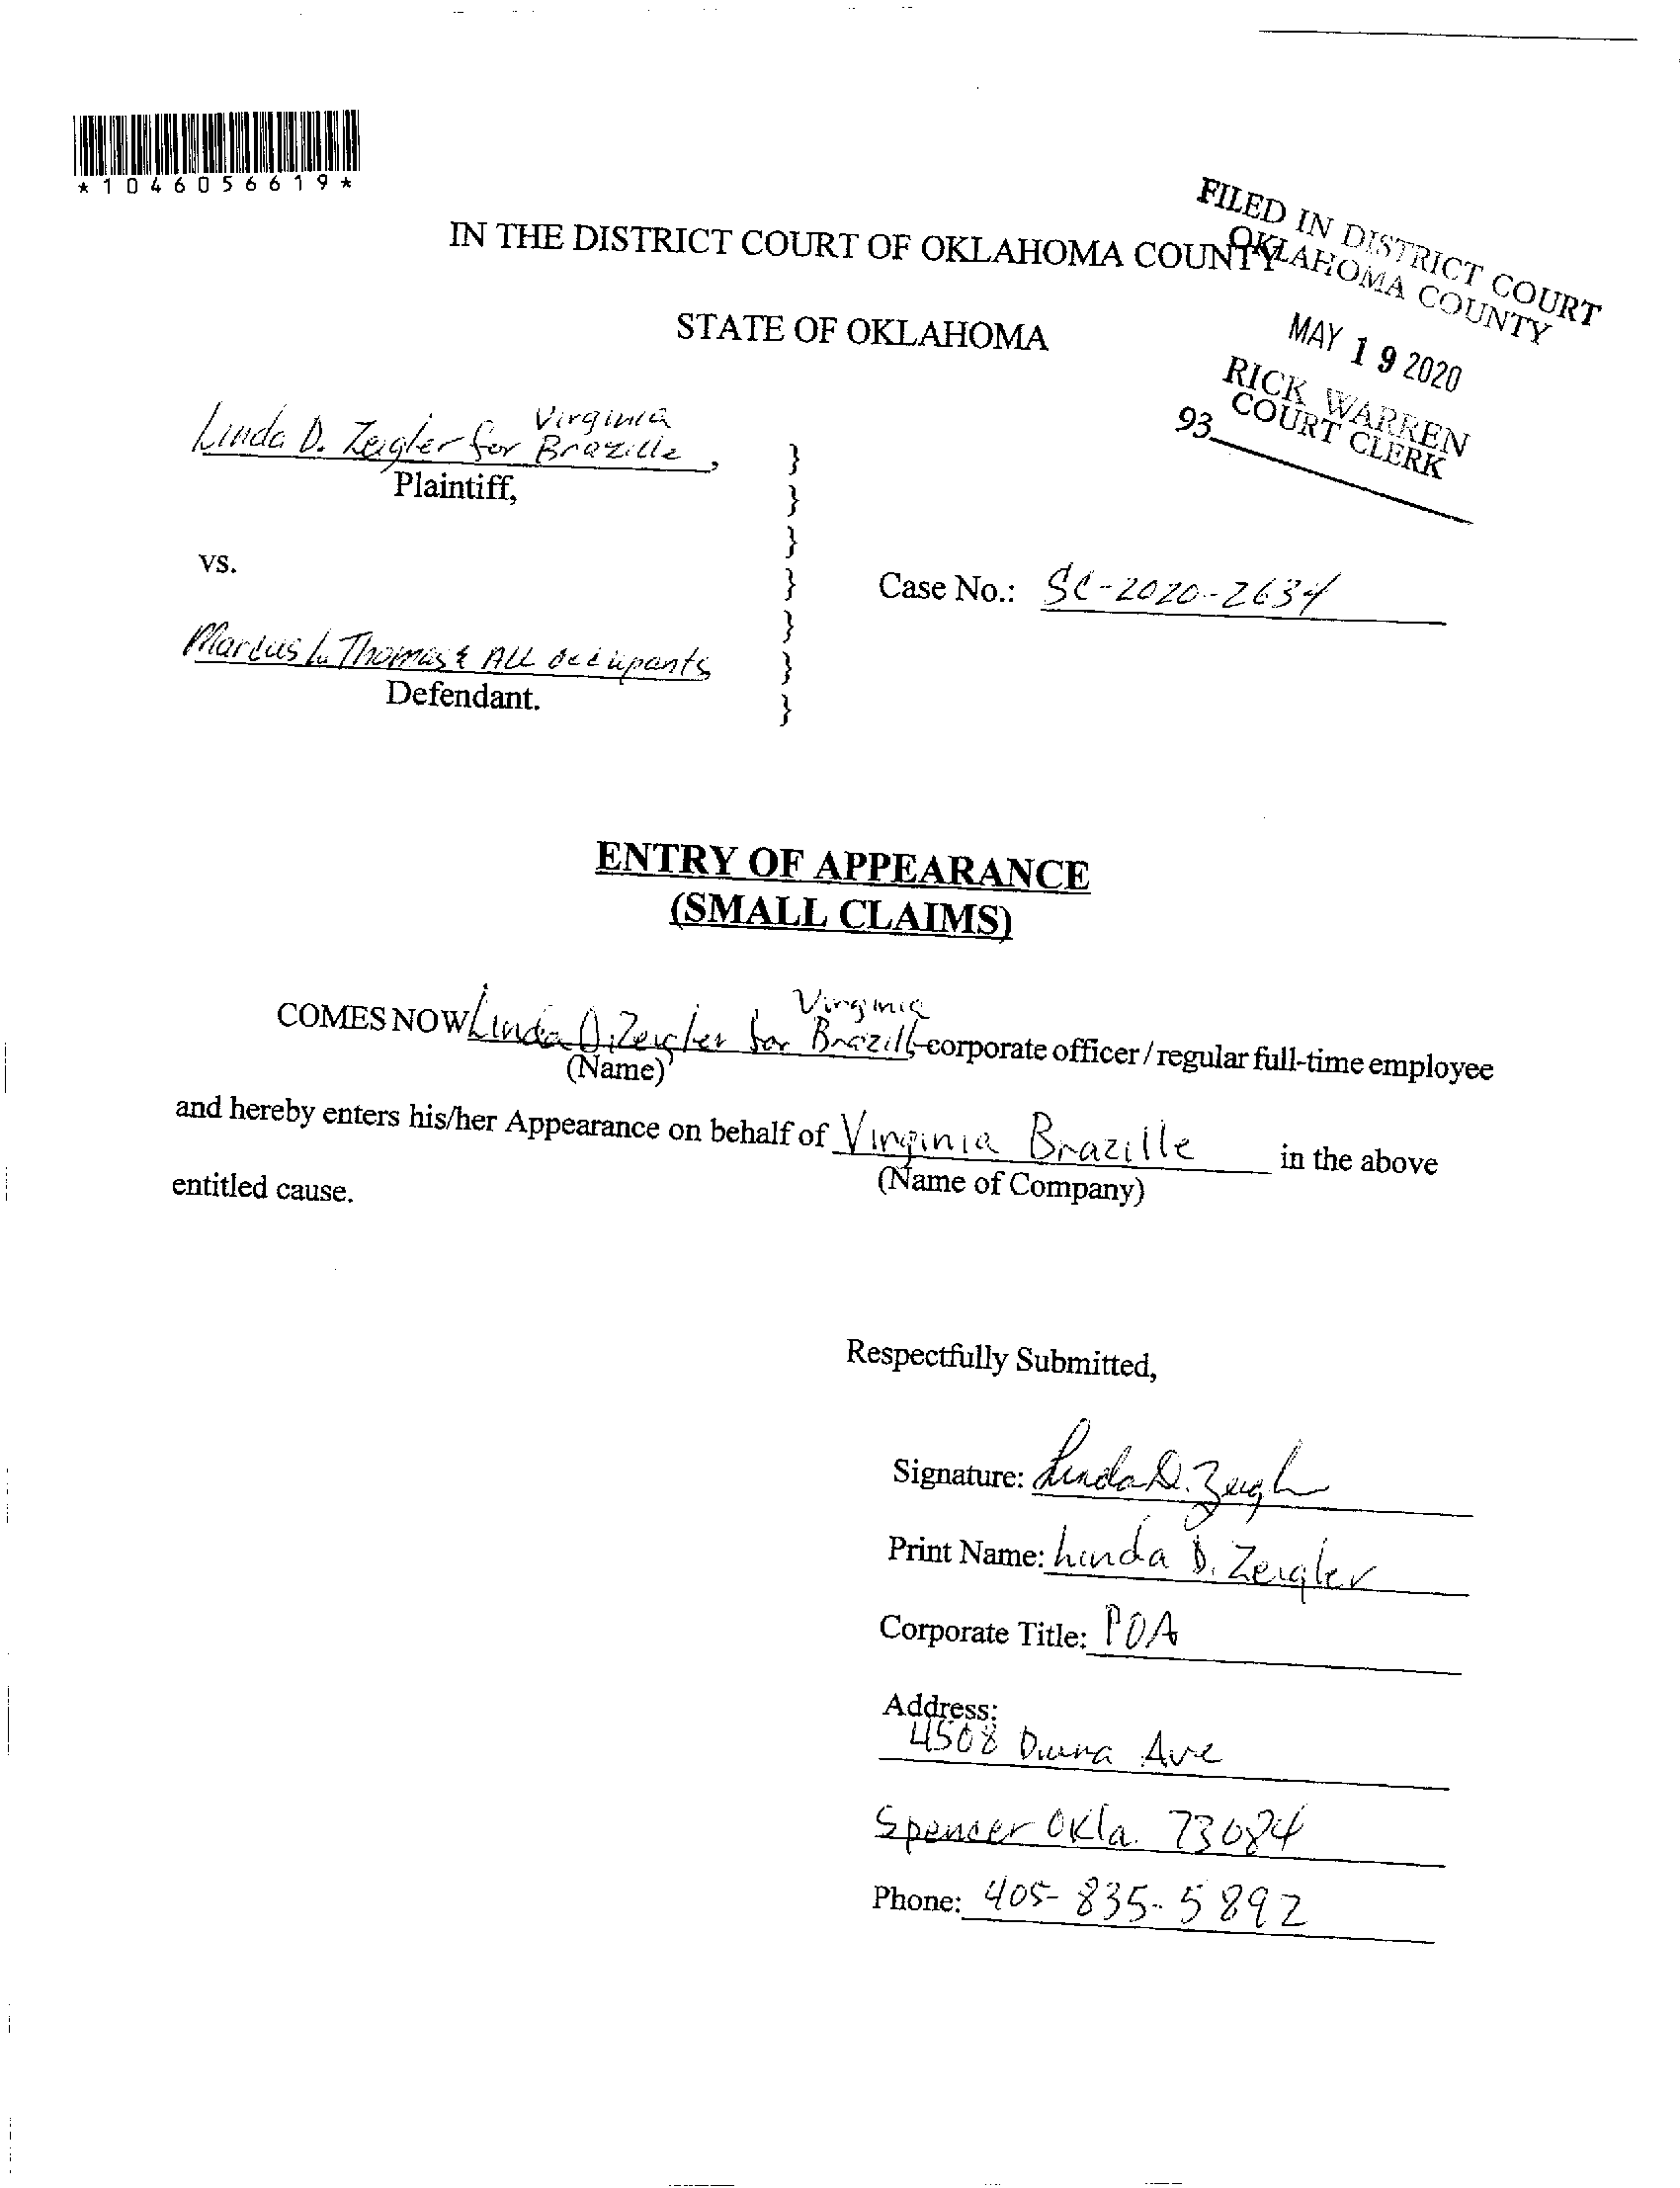 *1046056619*
FILED IN DISTRICT COURT
OKLAHOMA COUNTY
MAY 19 2020
RICK WARREN
COURT CLERK
93
IN THE DISTRICT COURT OF OKLAHOMA COUNTY
STATE OF OKLAHOMA
Linda D. Zeigler for Virginia Brazille,
Plaintiff,
vs.
Case No.: SC-2020-2634
Marcus L. Thomas & ALL occupants
Defendant.
}
}
}
}
}
}
}
ENTRY OF APPEARANCE
(SMALL CLAIMS)
COMES NOW Linda D. Zeigler for Virginia Brazille, corporate officer / regular full-time employee
(Name)
and hereby enters his/her Appearance on behalf of Virginia Brazille in the above
(Name of Company)
entitled cause.
Respectfully Submitted,
Signature: Linda D. Zeigler
Print Name: Linda D. Zeigler
Corporate Title: POA
Address:
4508 Diana Ave
Spencer Okla. 73084
Phone: 405-835-5892